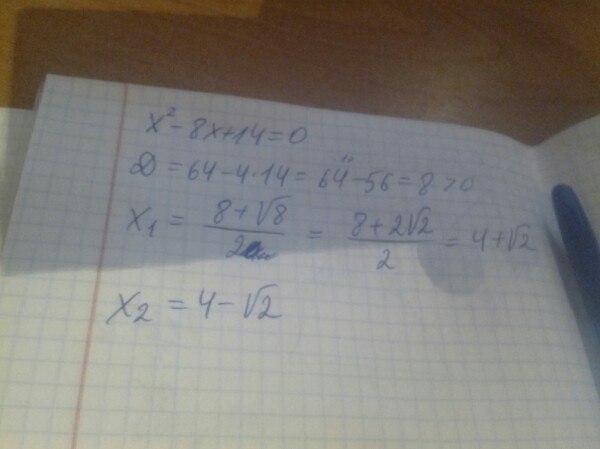 x² - 8x + 14 = 0
D = 64 - 4·14 = 64 - 56 = 8 > 0
x₁ = (8 + √8)/2 = (8 + 2√2)/2 = 4 + √2
x₂ = 4 - √2